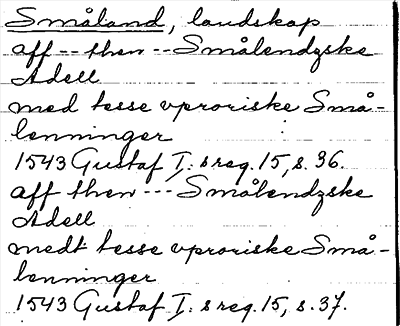 Småland, landskap
aff -- then -- Smålendzske
Adell
med tesse vproriske Små-
lenninger
1543 Gustaf I:s reg. 15, s. 36.
aff then --- Smålendzske
Adell
medt tesse vproriske Små-
lenninger
1543 Gustaf I:s reg. 15, s. 37.